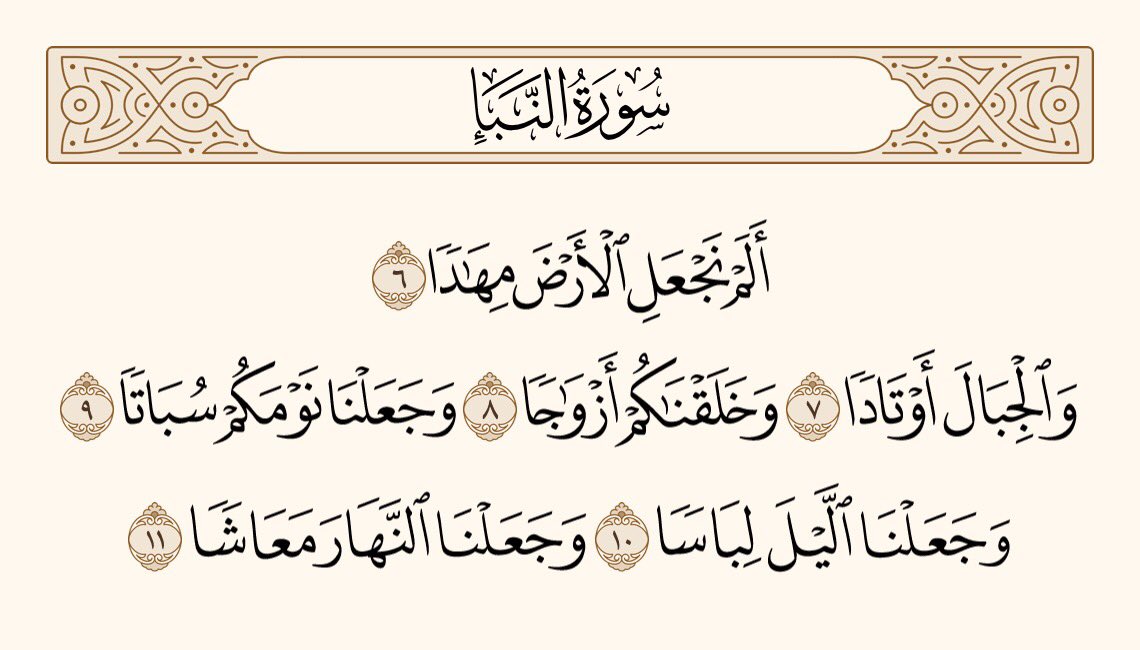 سُورَةُ النَّبَإِ
أَلَمْ نَجْعَلِ ٱلْأَرْضَ مِهَٰدًا ٦
وَٱلْجِبَالَ أَوْتَادًا ٧ وَخَلَقْنَٰكُمْ أَزْوَٰجًا ٨ وَجَعَلْنَا نَوْمَكُمْ سُبَاتًا ٩
وَجَعَلْنَا ٱلَّيْلَ لِبَاسًا ١٠ وَجَعَلْنَا ٱلنَّهَارَ مَعَاشًا ١١